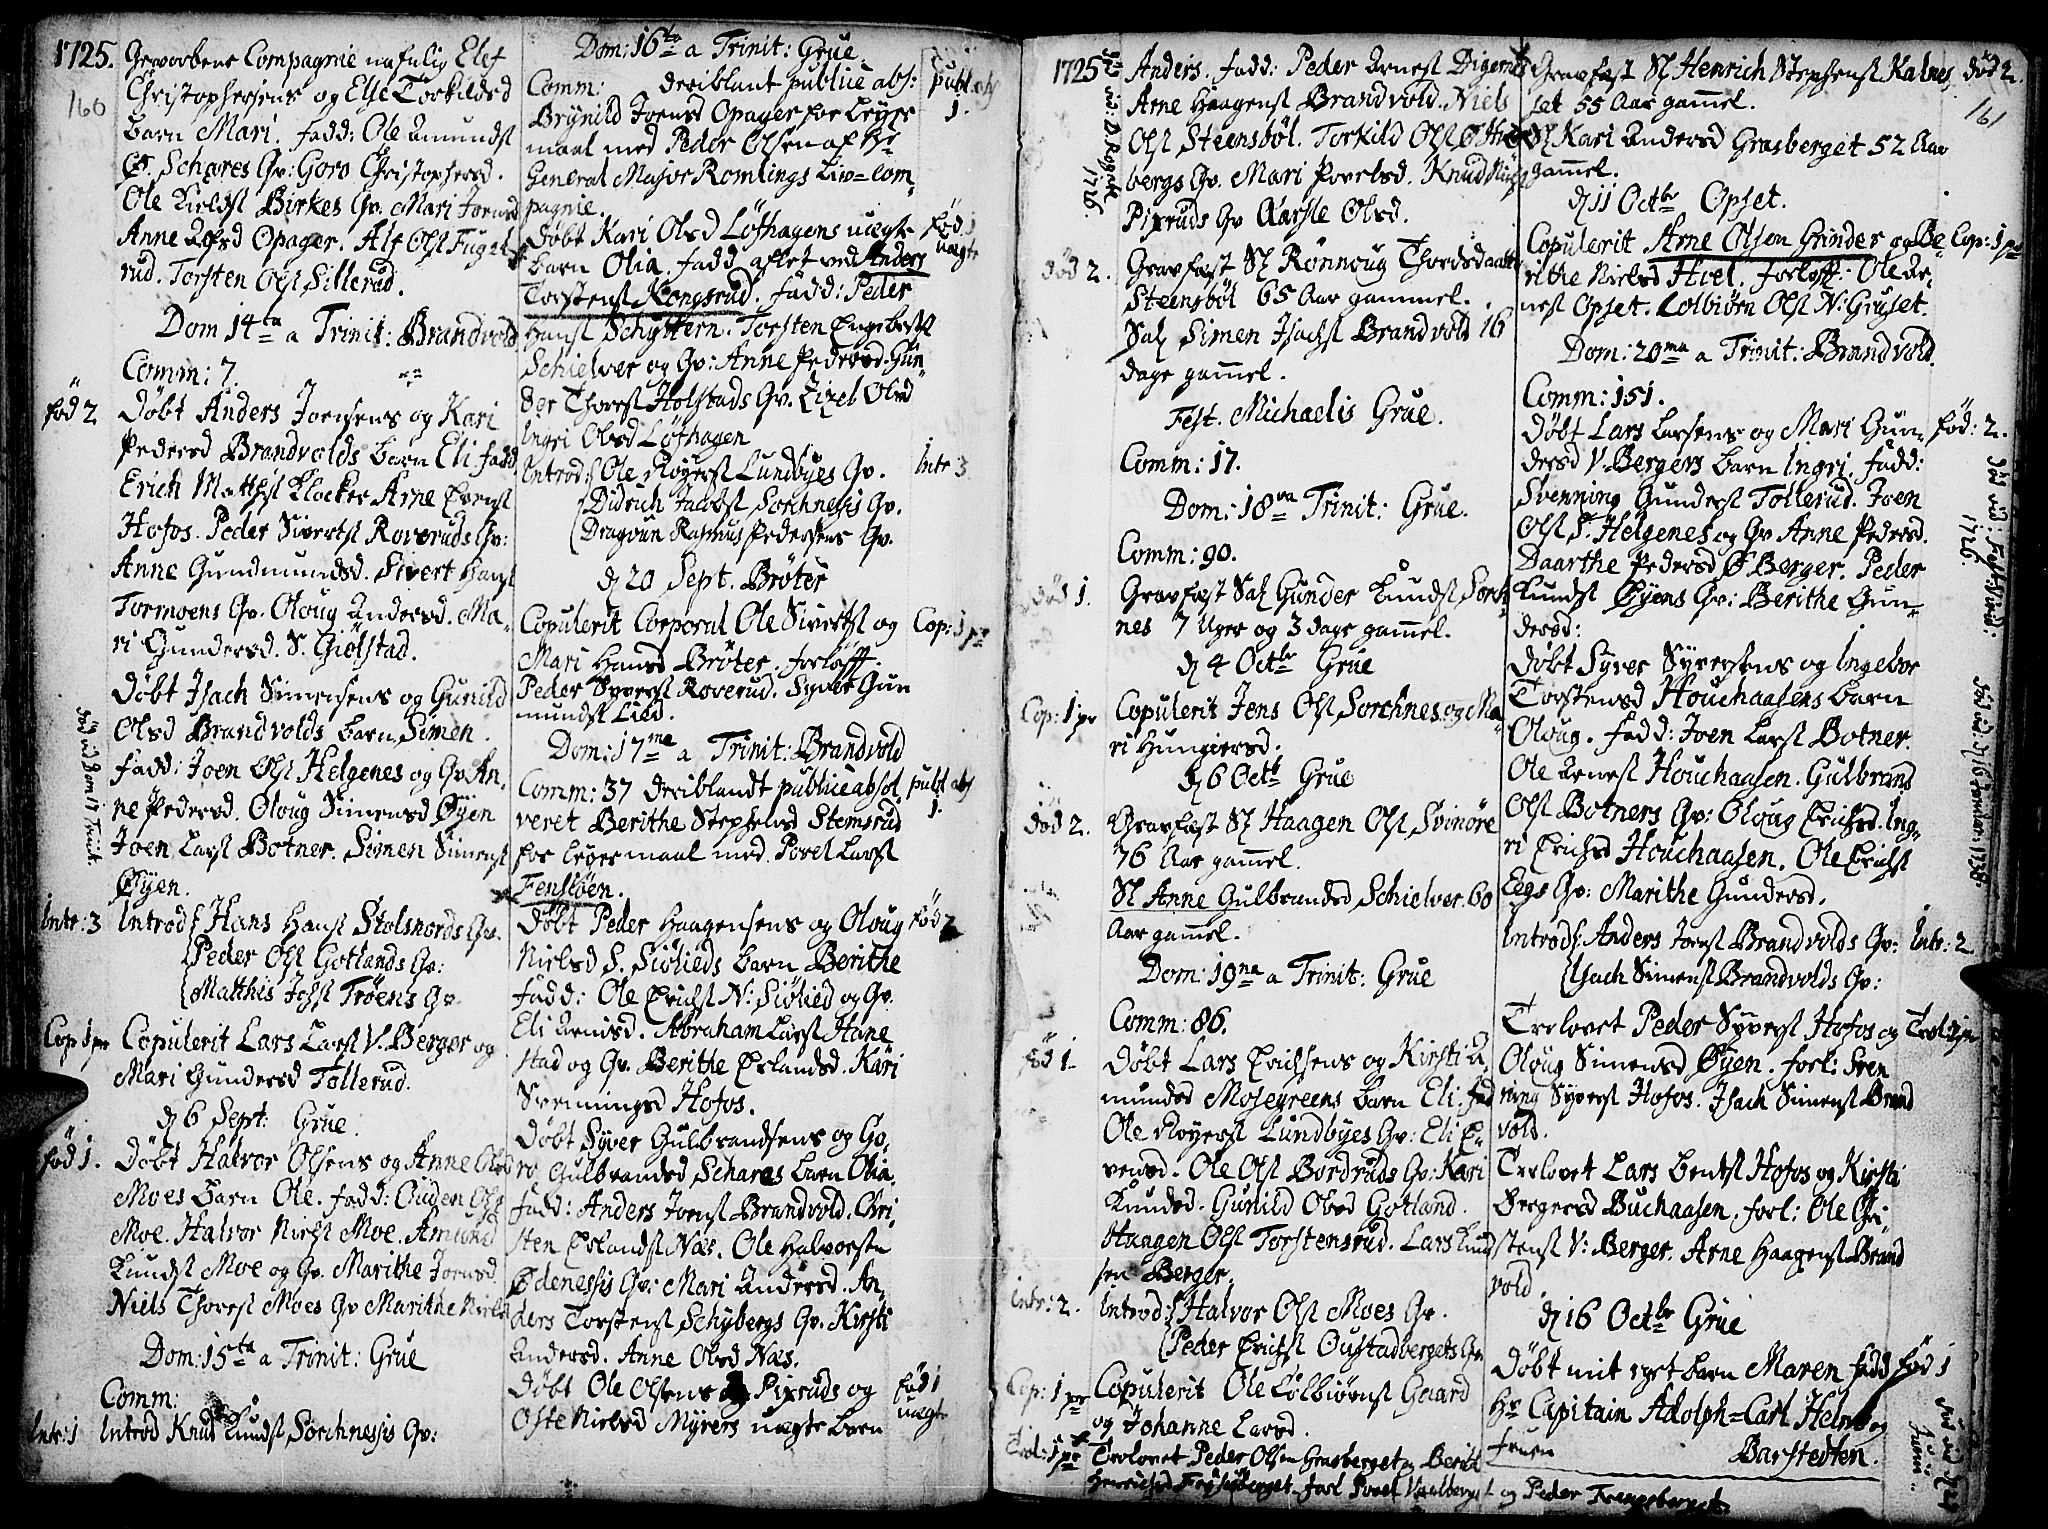 1725.
160
Gravorbens Compagnie nafulig Elef
Christophersens og Else Torkildsd
barn Mari. fadd: Ole Amundst
Schares Qv: Goro Christophersd.
Ole Kieldst Birkes Qv. Mari Joensd
Anne Olesd Opager. Alf Olst Fuget
rud. Torsten Olst Sillerud.
Dom 14ta a Trinit: Brandvold
Comm: 7.
fød 2
Døbt Anders Joensens og Kari
Pedersd Brandvolds barn Eli. fadd
Erich Matthist Klocker Arne Evenst
Hofos. Peder Sivertst Roveruds Qv:
Anne Gundmundsd. Sivert Hanst
Tormoens Qv. Oloug Andersd. Ma-
ri Gundersd. S. Giolstad.
Døbt Isach Simensens og Gunild
Olsd Brandvolds barn Simen.
død ved Dom 17 Trinit.
fadd: Joen Olst Helgenes og Qv An-
ne Pedersd. Oloug Simensd Øyen
Joen Larst Botner. Simen Simenst
Øyen.
Intr: 3
Introd: Hans Hanst Stolsnords Qv.
Peder Olst Gotlands Qv:
Matthis Johst Trøens Qv.
Cop 1 pr
Copulerit Lars Larst V. Berger og
Mari Gundersd Tollerud.
d 6 Sept: Grue.
fød 1.
Døbt Halvor Olsens og Anne Olsd
Moes barn Ole. fadd: Ouden Olst
Moe. Halvor Nielst Moe. Amund
Knudst Moe og Qv. Marithe Joensd.
Niels Thorest Moes Qv Marithe Nielsd
Dom: 15ta a Trinit: Grue
Comm:
Intr: 1
Introd Knud Knudst Sorchnessis Qv:
Dom: 16ta a Trinit: Grue
Comm: deriblant publice abs:
publ abs
1.
Brynild Joensd Opager for leyer
maal med Peder Olsen af Hr
General Major Romlings Liv-Com-
pagnie.
Døbt Kari Olsd Løfhagens uægte
fød. 1
uægte
barn Olia. fadd aflet ved Anders
Torstenst Kongsrud. fadd: Peder
Hanst Schyttern. Torsten Engebretst
Schielver og Qv: Anne Pedersd. Gun-
der Thorest Holstads Qv. Zizel Olsd
Ingri Olsd Løfhagen
Introd: Ole Royerst Lundbyes Qv.
Intr 3
Didrich Jacobst Sorchnessis Qv.
Dragoun Rasmus Pedersens Qv.
d 20 Sept. Brøter
Copulerit Corporal Ole Sivertst og
Cop: 1 pr
Mari Hansd Brøter. forlofft:
Peder Syverst Roverud. Syver Gun
mundst Lied.
Dom: 17ma a Trinit: Brandvold
Comm: 37 deriblandt publice absol-
publ abs
1.
veret Berithe Stephelsd Stemsrud
for leyermaal med Povel Larst
Fenstøen.
Døbt Peder Haagensens og Oloug
fød 2
Nielsd S. Siølieds barn Berithe
fadd: Ole Erichst N: Siølied og Qv.
Eli Arnisd. Abraham Larst Hane
stad og Qv. Berithe Erlandsd. Kari
Svenningsd Hofos.
Døbt Syver Gulbrandsens og Go-
ro Gulbrandsd Schares barn Olia.
fadd: Anders Joenst Brandvold. Chri-
sten Erlandst Næs. Ole Halvorsen
Ødenessis Qv: Mari Andersd. An-
ders Torstenst Schybergs Qv. Kirsti
Andersd. Anne Olsd Næs.
Døbt Ole Olsens Pixruds og
fød 1
uægte
Oste Nielsd Myrers uægte barn
1725
1726.
Anders. fadd: Peder Arnest Digernes
Arne Haagenst Brandvold. Niels
Olst Steensbøl. Torkild Olst
bergs Qv. Mari Povelsd. Knud
Pixruds Qv Aarsle Olsd.
død 2.
Gravfæst Sl Rønnoug Thordsdaatter
Steensbøl 65 Aar gammel.
Sal Simen Isachst Brandvold 16
dage gammel.
Fest. Michaelis Grue.
Comm: 17.
Dom: 18va Trinit: Grue.
Comm: 90.
død 1.
Gravfæst Sal Gunder Knudst Sorch
nes 7 Uger og 3 dage gammel.
d 4 Octbr Grue
Cop: 1 pr
Copulerit Jens Olst Sorchnes og Ma-
ri Hungiersd.
d 6 Octb Grue
død 2.
Gravfæst Sl Haagen Olst Svinøre
76 Aar gammel.
Sl Anne Gulbrandsd Schielver 60
Aar gammel.
Dom: 19na a Trinit: Grue
Comm: 86.
fød 1.
Døbt Lars Erichsens og Kirsti A-
mundsd Mosegreens barn Eli. fad
Ole Royerst Lundbyes Qv: Eli E-
vensd. Ole Olst Bordruds Qv: Kari
Knudsd. Gunild Olsd Gotland.
Haagen Olst Torstensrud. Lars Knud
sen Berger.
Intr: 2.
Introd: Halvor Olst Moes Qv.
Peder Erichst Oustadbergets Qv.
Cop: 1 pr
Copulerit Ole Colbiørnst Gaard
og Johanne Larsd.
Trol: 1 pr
Trolovet Peder Olsen Grasberget og Berith
Henrichsd Frysioberget. forl Povel Vaalberget og Peder Frangsberget.
Gravfæst Sl Henrich Stephenst Kalnes
død 2.
161
set 55 Aar gammel.
Sl Kari Andersd Grasberget 52 Aar
gammel.
d 11 Octbr Opset.
Copulerit Arne Olsen Grinder og Be-
Cop: 1 pr
rithe Nielsd Hoel. forlofft: Ole Ar-
nest Opset. Colbiørn Olst N: Gruset.
Dom: 20ma a Trinit: Brandvold.
Comm: 151.
Døbt Lars Larsens og Mari Gun-
fød: 2.
dersd V. Bergers barn Ingri. fadd:
Svenning Gunderst Tollerud. Joen
Olst S. Helgenes og Qv Anne Pedersd.
1726.
Daarthe Pedersd Ø Berger. Peder
Knudst Øyens Qv: Berithe Gun-
dersd:
Døbt Syver Syversens og Ingebor
Torstensd Houchaasens barn
Oloug. fadd: Joen Larst Botner.
Ole Arnest Houchaasen. Gulbrand
Olst Botners Qv: Oloug Erichsd. Ing-
ri Erichsd Houchaasen. Ole Erichst
Eegs Qv: Marithe Gundersd.
Introd: Anders Joenst Brandvolds Qv:
Intr: 2
Isach Simenst Brandvolds Qv:
Trolovet Peder Syverst Hofos og
Trol 2 pr
Oloug Simensd Øyen. forl: Sven
ning Syverst Hofos. Isach Simenst Brand
vold.
Trolovet Lars Bentst Hofos og Kirsti
Bergersd Buchaasen. forl: Ole Chri-
stenst V: Berger. Arne Haagenst Brand
vold.
d 16 Octbr Grue
Døbt mit eget barn Maren fadd
fød 1
Hr Capitain Adolph=Carl
Fruen Barstedten.